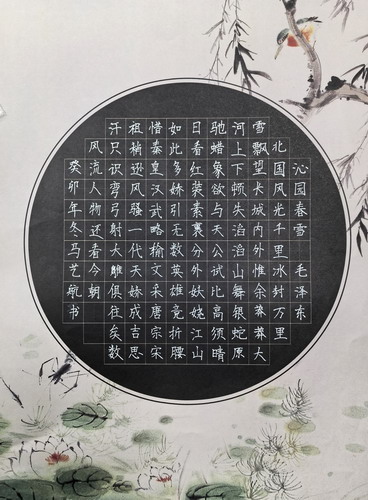 沁园春雪 毛泽东
北国风光千里冰封万里
雪飘望长城内外惟余莽莽大
河上下顿失滔滔山舞银蛇原
驰蜡象欲与天公试比高须晴
日看红装素裹分外妖娆江山
如此多娇引无数英雄竞折腰
惜秦皇汉武略输文采唐宗宋
祖稍逊风骚一代天娇成吉思
汗只识弯弓射大雕俱往矣数
风流人物还看今朝
癸卯年冬马艺航书